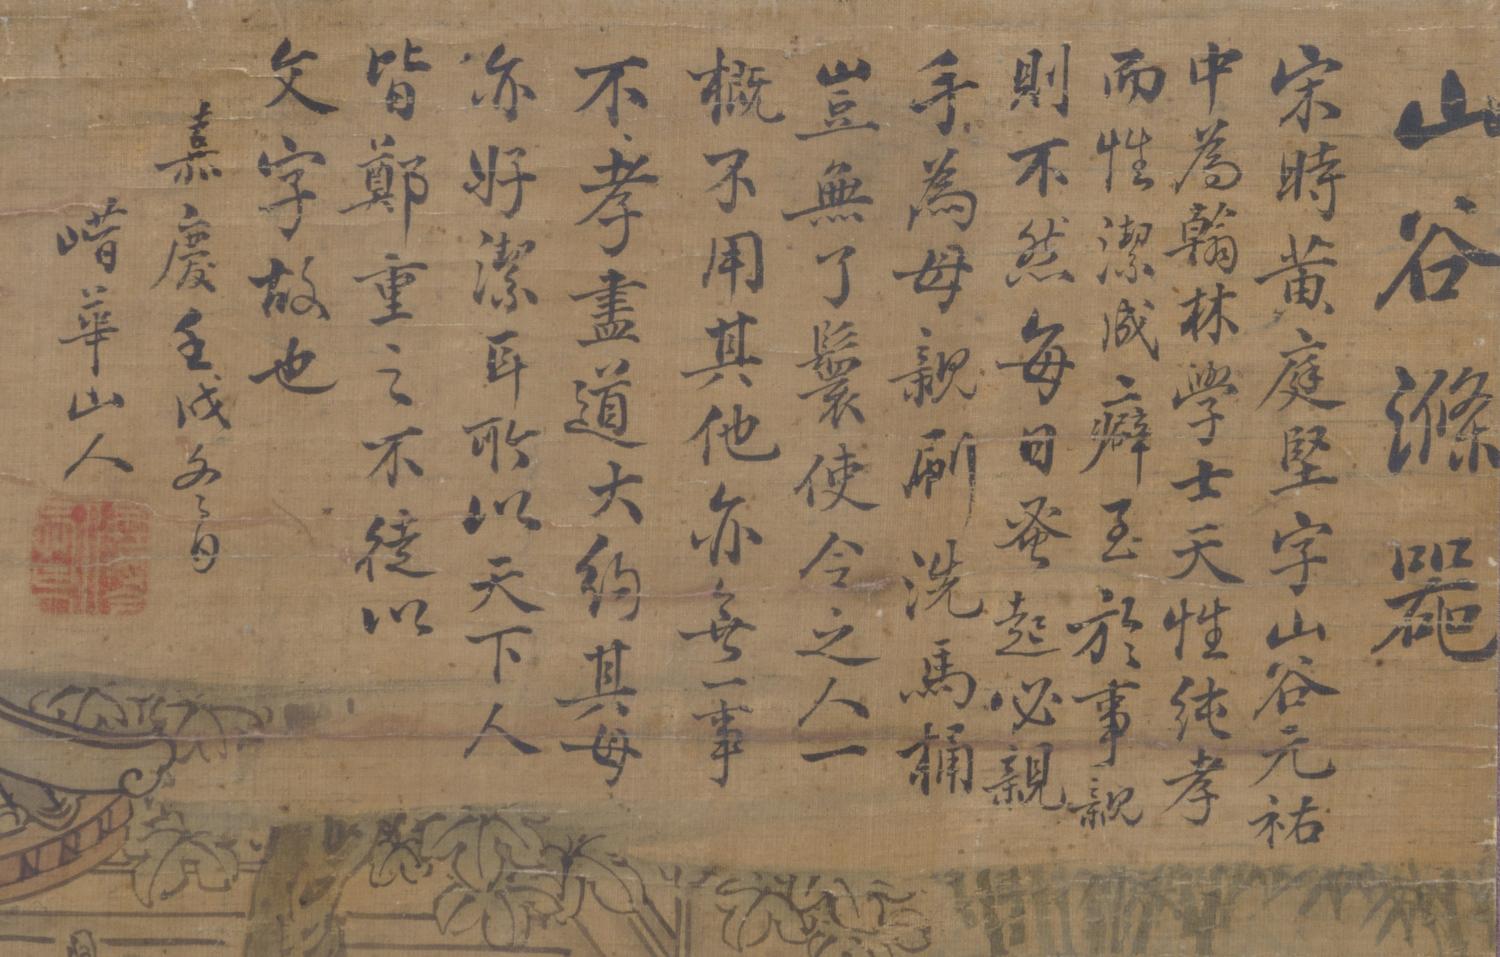 山谷滌器
宋時黄庭堅字山谷元祐
中為翰林學士天性純孝
而性潔成癖至於事親
則不然每日蚤起必親
手為母親刷洗馬桶
豈無了鬟使令之人一
概不用其他亦無一事
不孝盡道大約其母
亦好潔耳所以天下人
皆鄭重之不徒以
文字故也
嘉慶壬戌冬日
華山人